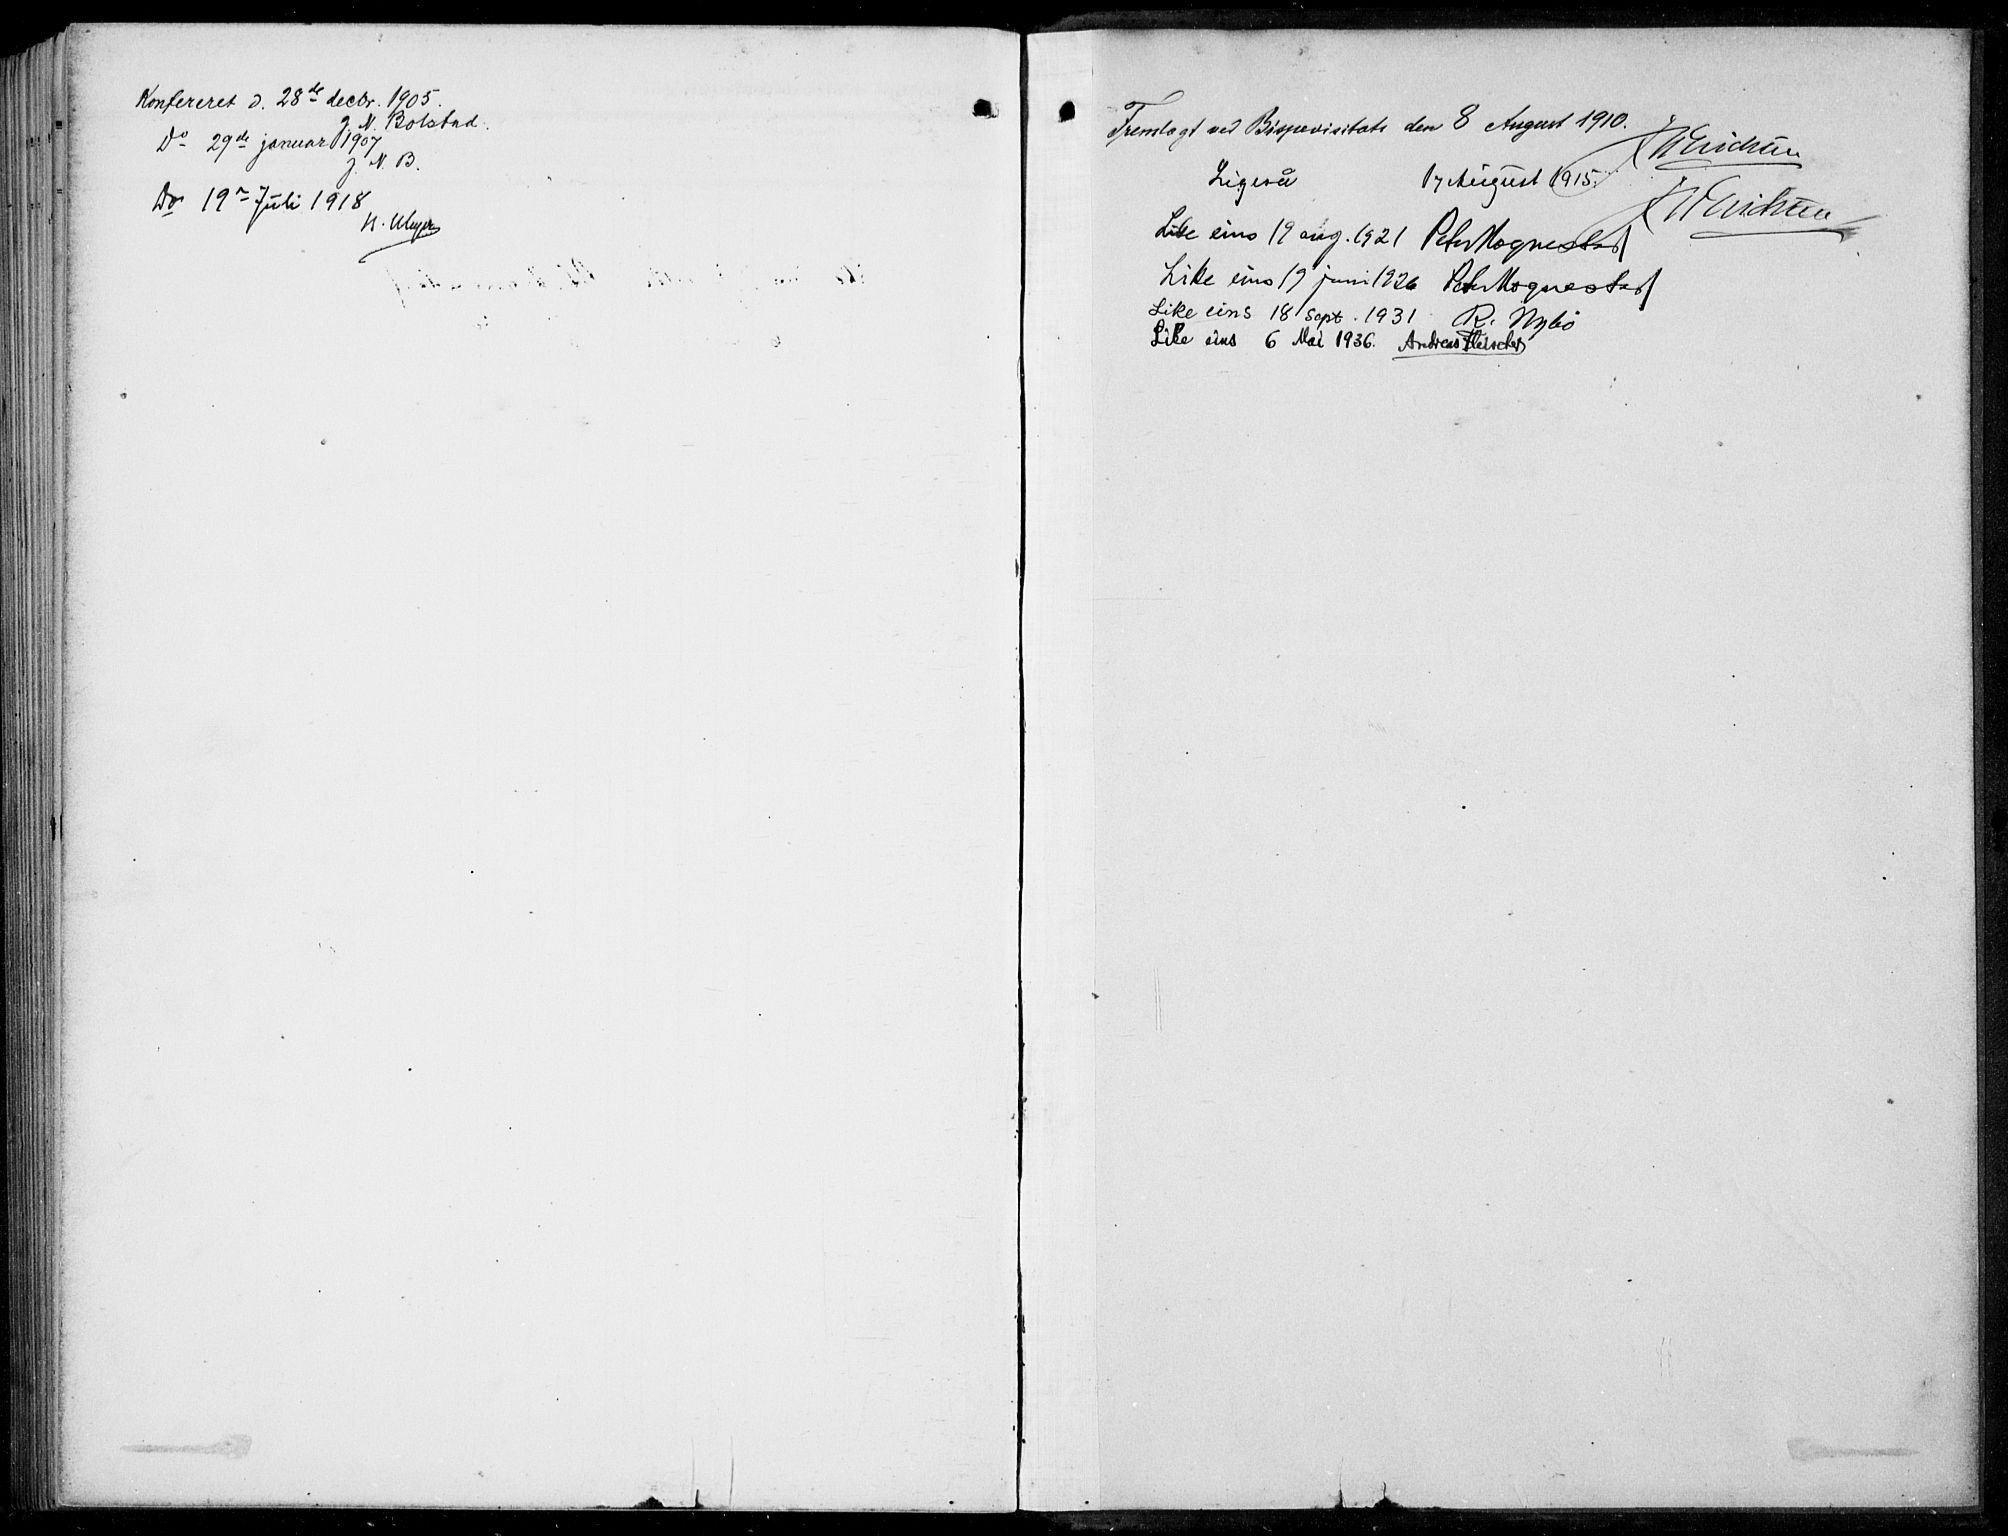 Konfereret d. 28de decbr. 1905.
J. N. Bolstad.
Do 29de januar 1907
J. N. B.
Do 19n Juli 1918
H. Meyer
Fremlagt ved Bispevisitats den 8 August 1910.
J W Erichsen
Ligeså 17 August 1915.
J W Erichsen
Like eins 19 aug. 1921 Peter Hognestad
Like eins 19 juni 1926 Peter Hognestad
Like eins 18 sept. 1931 R. Nybø
Like eins 6 Mai 1936. Andreas Fleischer